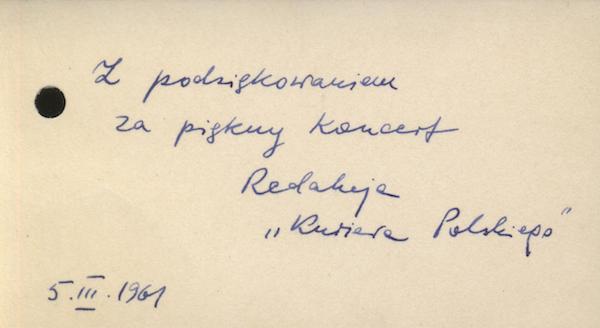 Z podziękowaniem
za piękny koncert
Redakcja
„Kuriera Polskiego"
5.III.1961